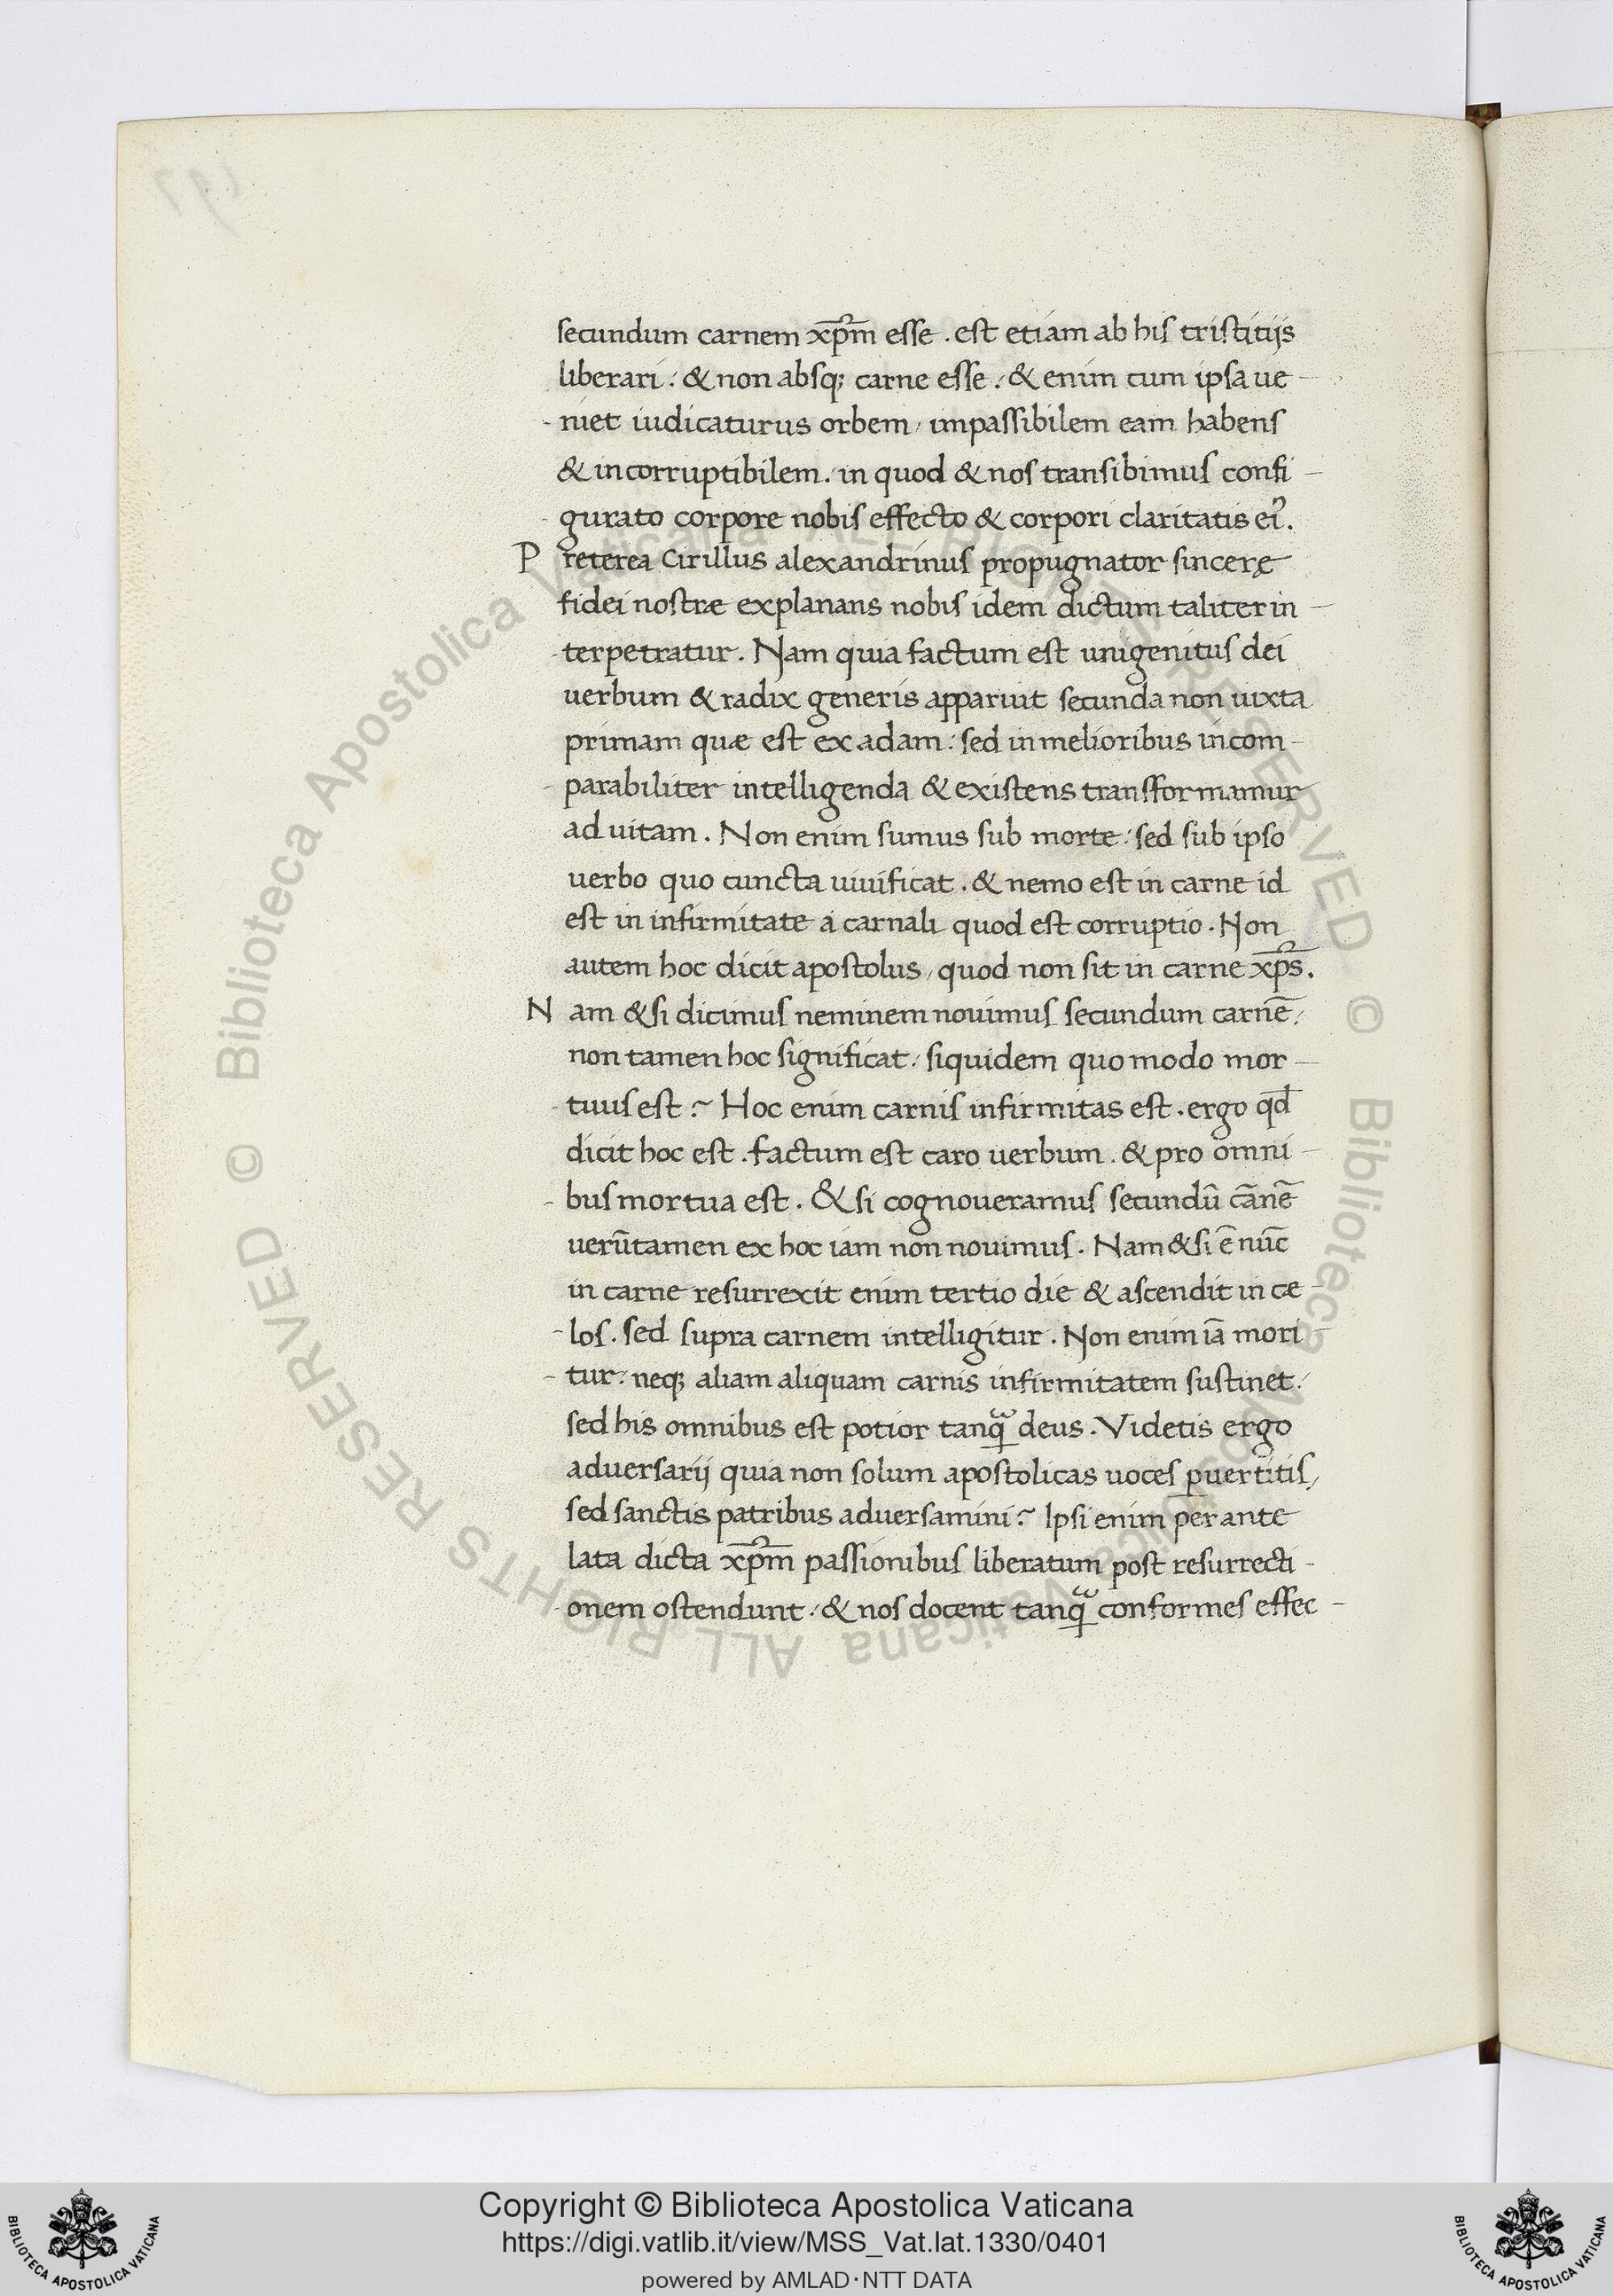 secundum carnem xp̅m esse . est etiam ab his tristitijs
liberari : & non absq; carne esse : & enim cum ipsa ue -
- niet iudicaturus orbem / impassibilem eam habens
& incorruptibilem . in quod & nos transibimus confi -
- gurato corpore nobis effecto & corpori claritatis ei᾿.
P reterea Cirillus alexandrinus propugnator sincerę
fidei nostræ explanans nobis idem dictum taliter in -
- terpetratur . Nam quia factum est unigenitus dei
uerbum & radix generis apparuit secunda non iuxta
primam quæ est ex adam : sed in melioribus incom -
- parabiliter intelligenda & existens transformamur
ad uitam . Non enim sumus sub morte : sed sub ipso
uerbo quo cuncta uiuificat . & nemo est in carne id
est in infirmitate a carnali quod est corruptio . Non
autem hoc dicit apostolus / quod non sit in carne xp̅s .
N am & si dicimus neminem nouimus secundum carnē :
non tamen hoc significat : siquidem quo modo mor -
- tuus est ? Hoc enim carnis infirmitas est . ergo qd̅
dicit hoc est . factum est caro uerbum . & pro omni -
- bus mortua est . & si cognoueramus secundū cānē
uerūtamen ex hoc iam non nouimus . Nam & si ē nūc
in carne resurrexit enim tertio die & ascendit in cæ -
- los . sed supra carnem intelligitur . Non enim iā mori -
- tur : neq; aliam aliquam carnis infirmitatem sustinet :
sed his omnibus est potior tanꝗᷓ deus . Videtis ergo
aduersarij quia non solum apostolicas uoces ꝑuertitis /
sed sanctis patribus aduersamini ? Ipsi enim per ante
lata dicta xp̅m passionibus liberatum post resurrecti -
- onem ostendunt : & nos docent tanꝗᷓ conformes effec -
Copyright © Biblioteca Apostolica Vaticana
https://digi.vatlib.it/view/MSS_Vat.lat.1330/0401
powered by AMLAD · NTT DATA
BIBLIOTECA APOSTOLICA VATICANA
BIBLIOTECA APOSTOLICA VATICANA
© Biblioteca Apostolica Vaticana ALL RIGHTS RESERVED © Biblioteca Apostolica Vaticana ALL RIGHTS RESERVED